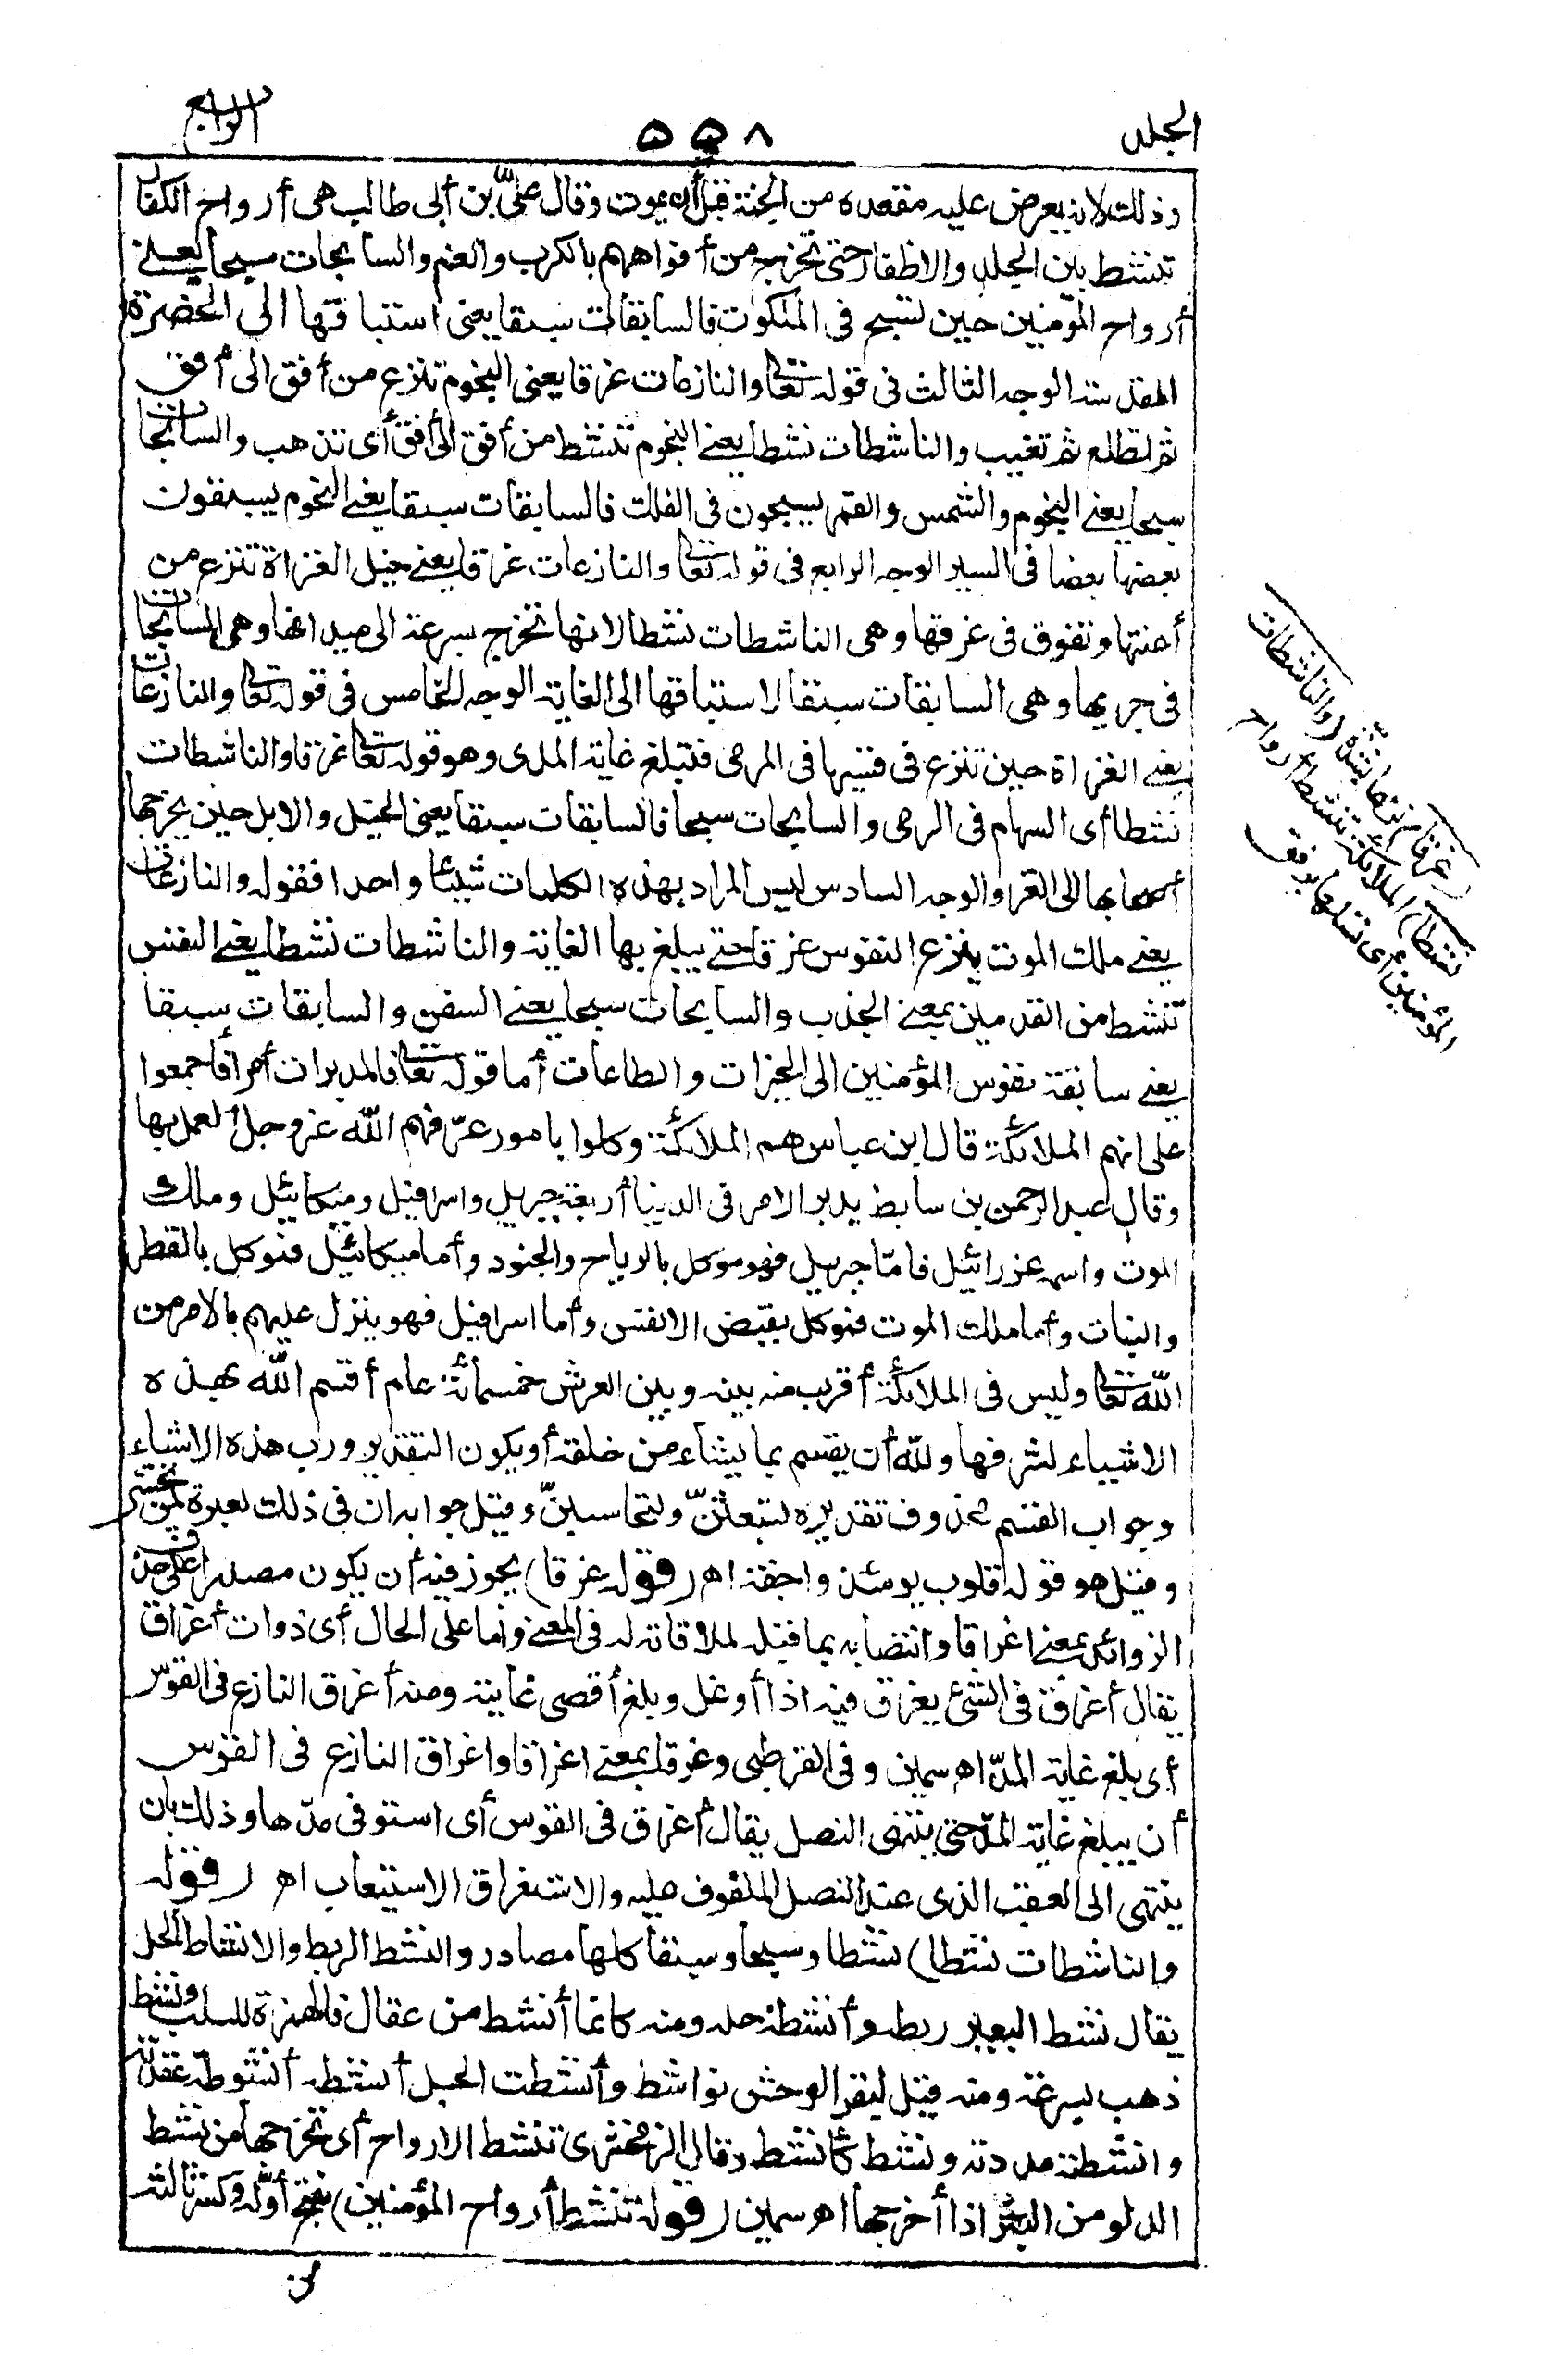 الجلد
٥٥٨
الرابع
وذلك لانه يعرض عليه مقعده من الجنة قبل أن يموت وقال علىّ بن أبى طالب هى أرواح الكفار
تنشط بين الجلد والاظفار حتى تخرج من أفواههم بالكرب والغم والسابحات سبحا يعنى
أرواح المؤمنين حين تسبح فى الملكوت فالسابقات سبقا يعنى استباقها الى الحضرة
المقدسة الوجه الثالث فى قوله تعالى والنازعات غرقا يعنى النجوم تنزع من أفق الى أفق
ثم تطلع ثم تغيب والناشطات نشطا يعنى النجوم تنشط من أفق الى أفق أى تذهب والسابحات
سبحا يعنى النجوم والشمس والقمر يسبحون فى الفلك فالسابقات سبقا يعنى النجوم يسبقون
بعضها بعضا فى السير الوجه الرابع فى قوله تعالى والنازعات غرقا يعنى خيل الغزاة تنزع من
أعنتها وتغوق فى غرقها وهى الناشطات نشطا لانها تخرج بسرعة الى ميدانها وهى السابحات
فى جريها وهى السابقات سبقا لاستباقها الى الغاية الوجه الخامس فى قوله تعالى والنازعات
يعنى الغزاة حين تنزع فى قسيها فى الرمى فتبلغ غاية المدى وهو قوله تعالى غرقا والناشطات
نشطا أى السهام فى الرمى والسابحات سبحا فالسابقات سبقا يعنى الخيل والابل حين يخرجها
أصحابها الى الغزو الوجه السادس ليس المراد بهذه الكلمات شيئا واحدا فقوله والنازعات
يعنى ملك الموت ينزع النفوس غرقا حتى يبلغ بها الغاية والناشطات نشطا يعنى النفس
تنشط من القدمين بمعنى الجذب والسابحات سبحا يعنى السفن والسابقات سبقا
يعنى سابقة نفوس المؤمنين الى الخيرات والطاعات أما قوله تعالى فالمدبرات أمرا فأجمعوا
على انهم الملائكة قال ابن عباس هم الملائكة وكلوا بامور عرّفهم الله عز وجل العمل بها
وقال عبد الرحمن بن سابط يدبر الامر فى الدنيا أربعة جبريل واسرافيل وميكائيل وملك
الموت واسمه عزرائيل فامّا جبريل فهو موكل بالرياح والجنود وأما ميكائيل فموكل بالقطر
والنبات وأما ملك الموت فموكل بقبض الانفس وأما اسرافيل فهو ينزل عليهم بالامر من
الله تعالى وليس فى الملائكة أقرب منه بينه وبين العرش خمسمائة عام أقسم الله بهذه
الاشياء لشرفها ولله أن يقسم بما يشاء من خلقه أو يكون التقدير ورب هذه الاشياء
وجواب القسم محذوف تقديره لتبعثنّ ولتحاسبنّ وقيل جوابه ان فى ذلك لعبرة لمن يخشى
وقيل هو قوله قلوب يومئذ واجفة اه (قوله غرقا) يجوز فيه أن يكون مصدرا على حذف
الزوائد بمعنى اغراقا وانتصابه بما قبله لملاقاته له فى المعنى واما على الحال أى ذوات أغراق
يقال أغرق فى الشئ يغرق فيه اذا أوغل وبلغ أقصى غايته ومنه أغرق النازع فى القوس
أى بلغ غاية المدّ اه سمين وفى القرطبى وغرقا بمعنى اغراقا واغراق النازع فى القوس
أن يبلغ غاية المدّ حتى ينتهى النصل يقال أغرق فى القوس أى استوفى مدّها وذلك بان
ينتهى الى العقب الذى عند النصل الملفوف عليه والاستغراق الاستيعاب اه (قوله
والناشطات نشطا) نشطا وسبحا وسبقا كلها مصادر والنشط الربط والانشاط الحل
يقال نشط البعير ربطه وأنشطه حله ومنه كانما أنشط من عقال فالهمزة للسلب ونشط
ذهب بسرعة ومنه قيل لبقر الوحش نواشط وأنشطت الحبل أنشطه أنشوطة عقدته
وانشطته مددته ونشط كأنشط وقال الزمخشرى تنشط الارواح أى تخرجها من نشط
الدلو من البئر اذا أخرجها اه سمين (قوله تنشط أرواح المؤمنين) بفتح أوّله وكسر ثالثه
من
(غرقا) نزعا بشدّة (والناشطات
نشطا) الملائكة تنشط أرواح
المؤمنين أى تسلها برفق